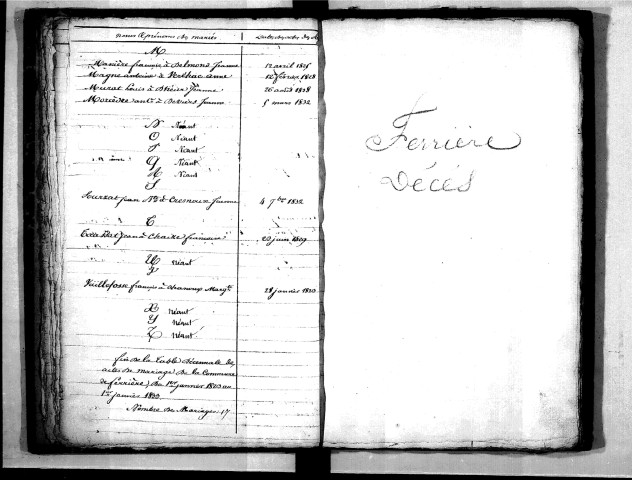 Noms & prénoms des mariés Dates des actes des
M
Manière françois à Delmond Jeanne 12 avril 1825
Magne antoine à anne 12 février 1828
Murat Louis à Jeanne 26 août 1828
à Jeanne 5 mars 1832
N Néant
O Néant
P Néant
Q Néant
R Néant
S
jean à Jeanne 4 7bre 1832
T
à françoise 20 juin 1829
U néant
V
Vaillefosse françois à Chanoux Margte 28 janvier 1830
X néant
Y néant
Z néant
fin de la table Décennale des
actes de mariage de la Commune
de ferrière, du 1er janvier 1823 au
1er janvier 1833
Nombre des Mariages 17
Ferrière
Décès